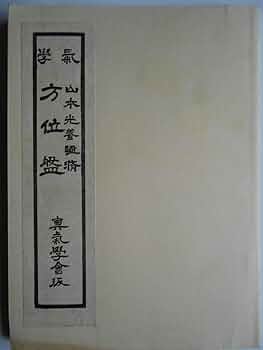 氣學
山本光養
方位盤
氣學會版